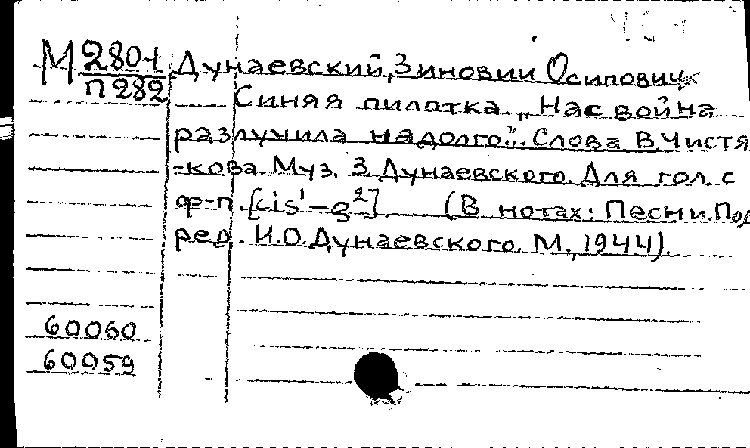 М 2801 Дунаевский, Зиновий Осипович
П 282
Синяя пилотка „Нас война
разлучила надолго". Слова В.Чистя
-кова. Муз. З. Дунаевского. Для гол. с
ф-п. [cis¹-g²] (В нотах: Песни. Под
ред. И.О.Дунаевского. М., 1944).
60060
60059